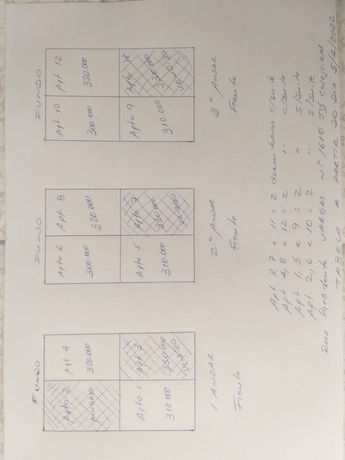 FUNDO
Apto 2
Apt 4
320.000
Apto 1
310 000
Apt 3
330 000
1 ANDAR
Frente
FUNDO
Apto 6
300 000
Apt 8
320 000
Apt 5
310 000
Apto 7
330 000
2º ANDAR
Frente
FUNDO
Apt 10
300 000
Apt 12
320 000
Apto 9
310 000
Apto 11
330 000
3º ANDAR
Frente
Apt 3, 7 e 11 = 2 dormitorios c/suite
Apt 4, 8 e 12 = 2 " c/suite
Apt 1, 5 e 9 = 2 " S/Suite
Apt 2, 6 e 10 = 2 " S/Suite
Rua Presidente VARGAS Nº 1610
TABELA A PARTIR DO DIA